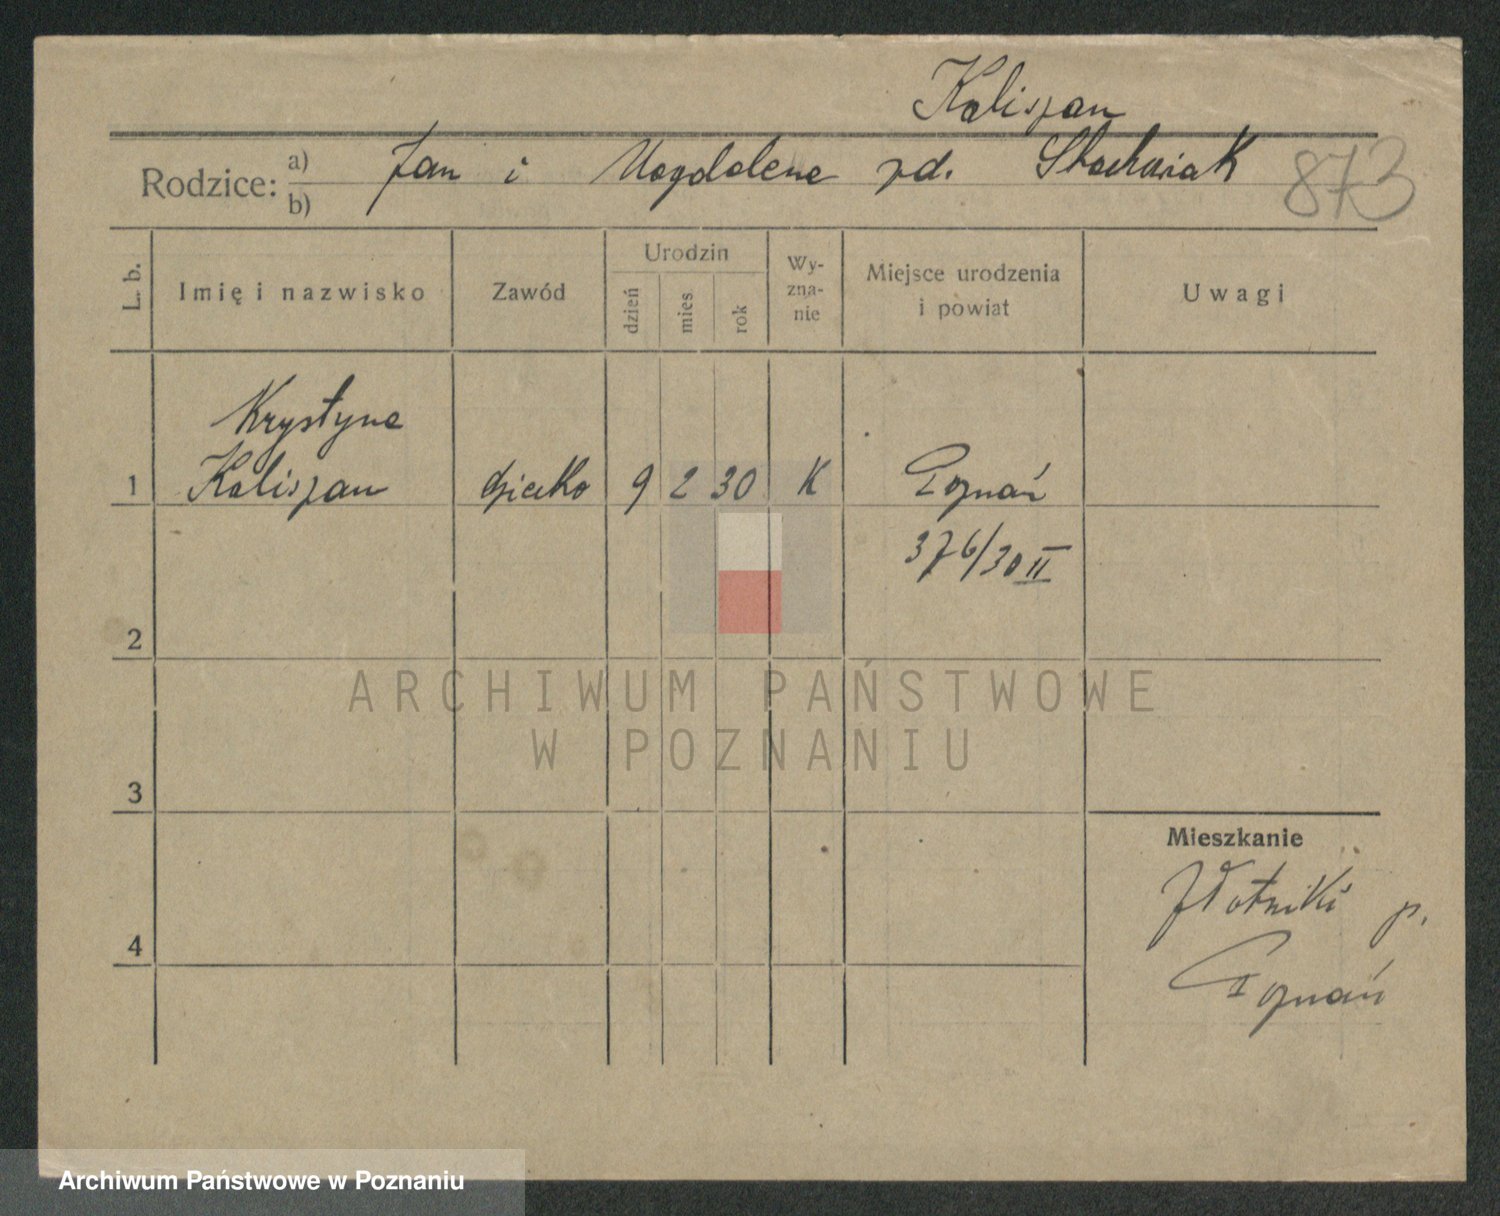 Kaliszan
Rodzice: a) b) Jan i Magdalena zd. Stachowiak 873
L. b. Imię i nazwisko Zawód Urodzin dzień mies rok Wy-zna-nie Miejsce urodzenia i powiat Uwagi
Krystyna
1 Kaliszan dziecko 9 2 30 K Poznań
376/30 II
2
ARCHIWUM PAŃSTWOWE
W POZNANIU
3
Mieszkanie
Złotniki p.
4
Poznań
Archiwum Państwowe w Poznaniu